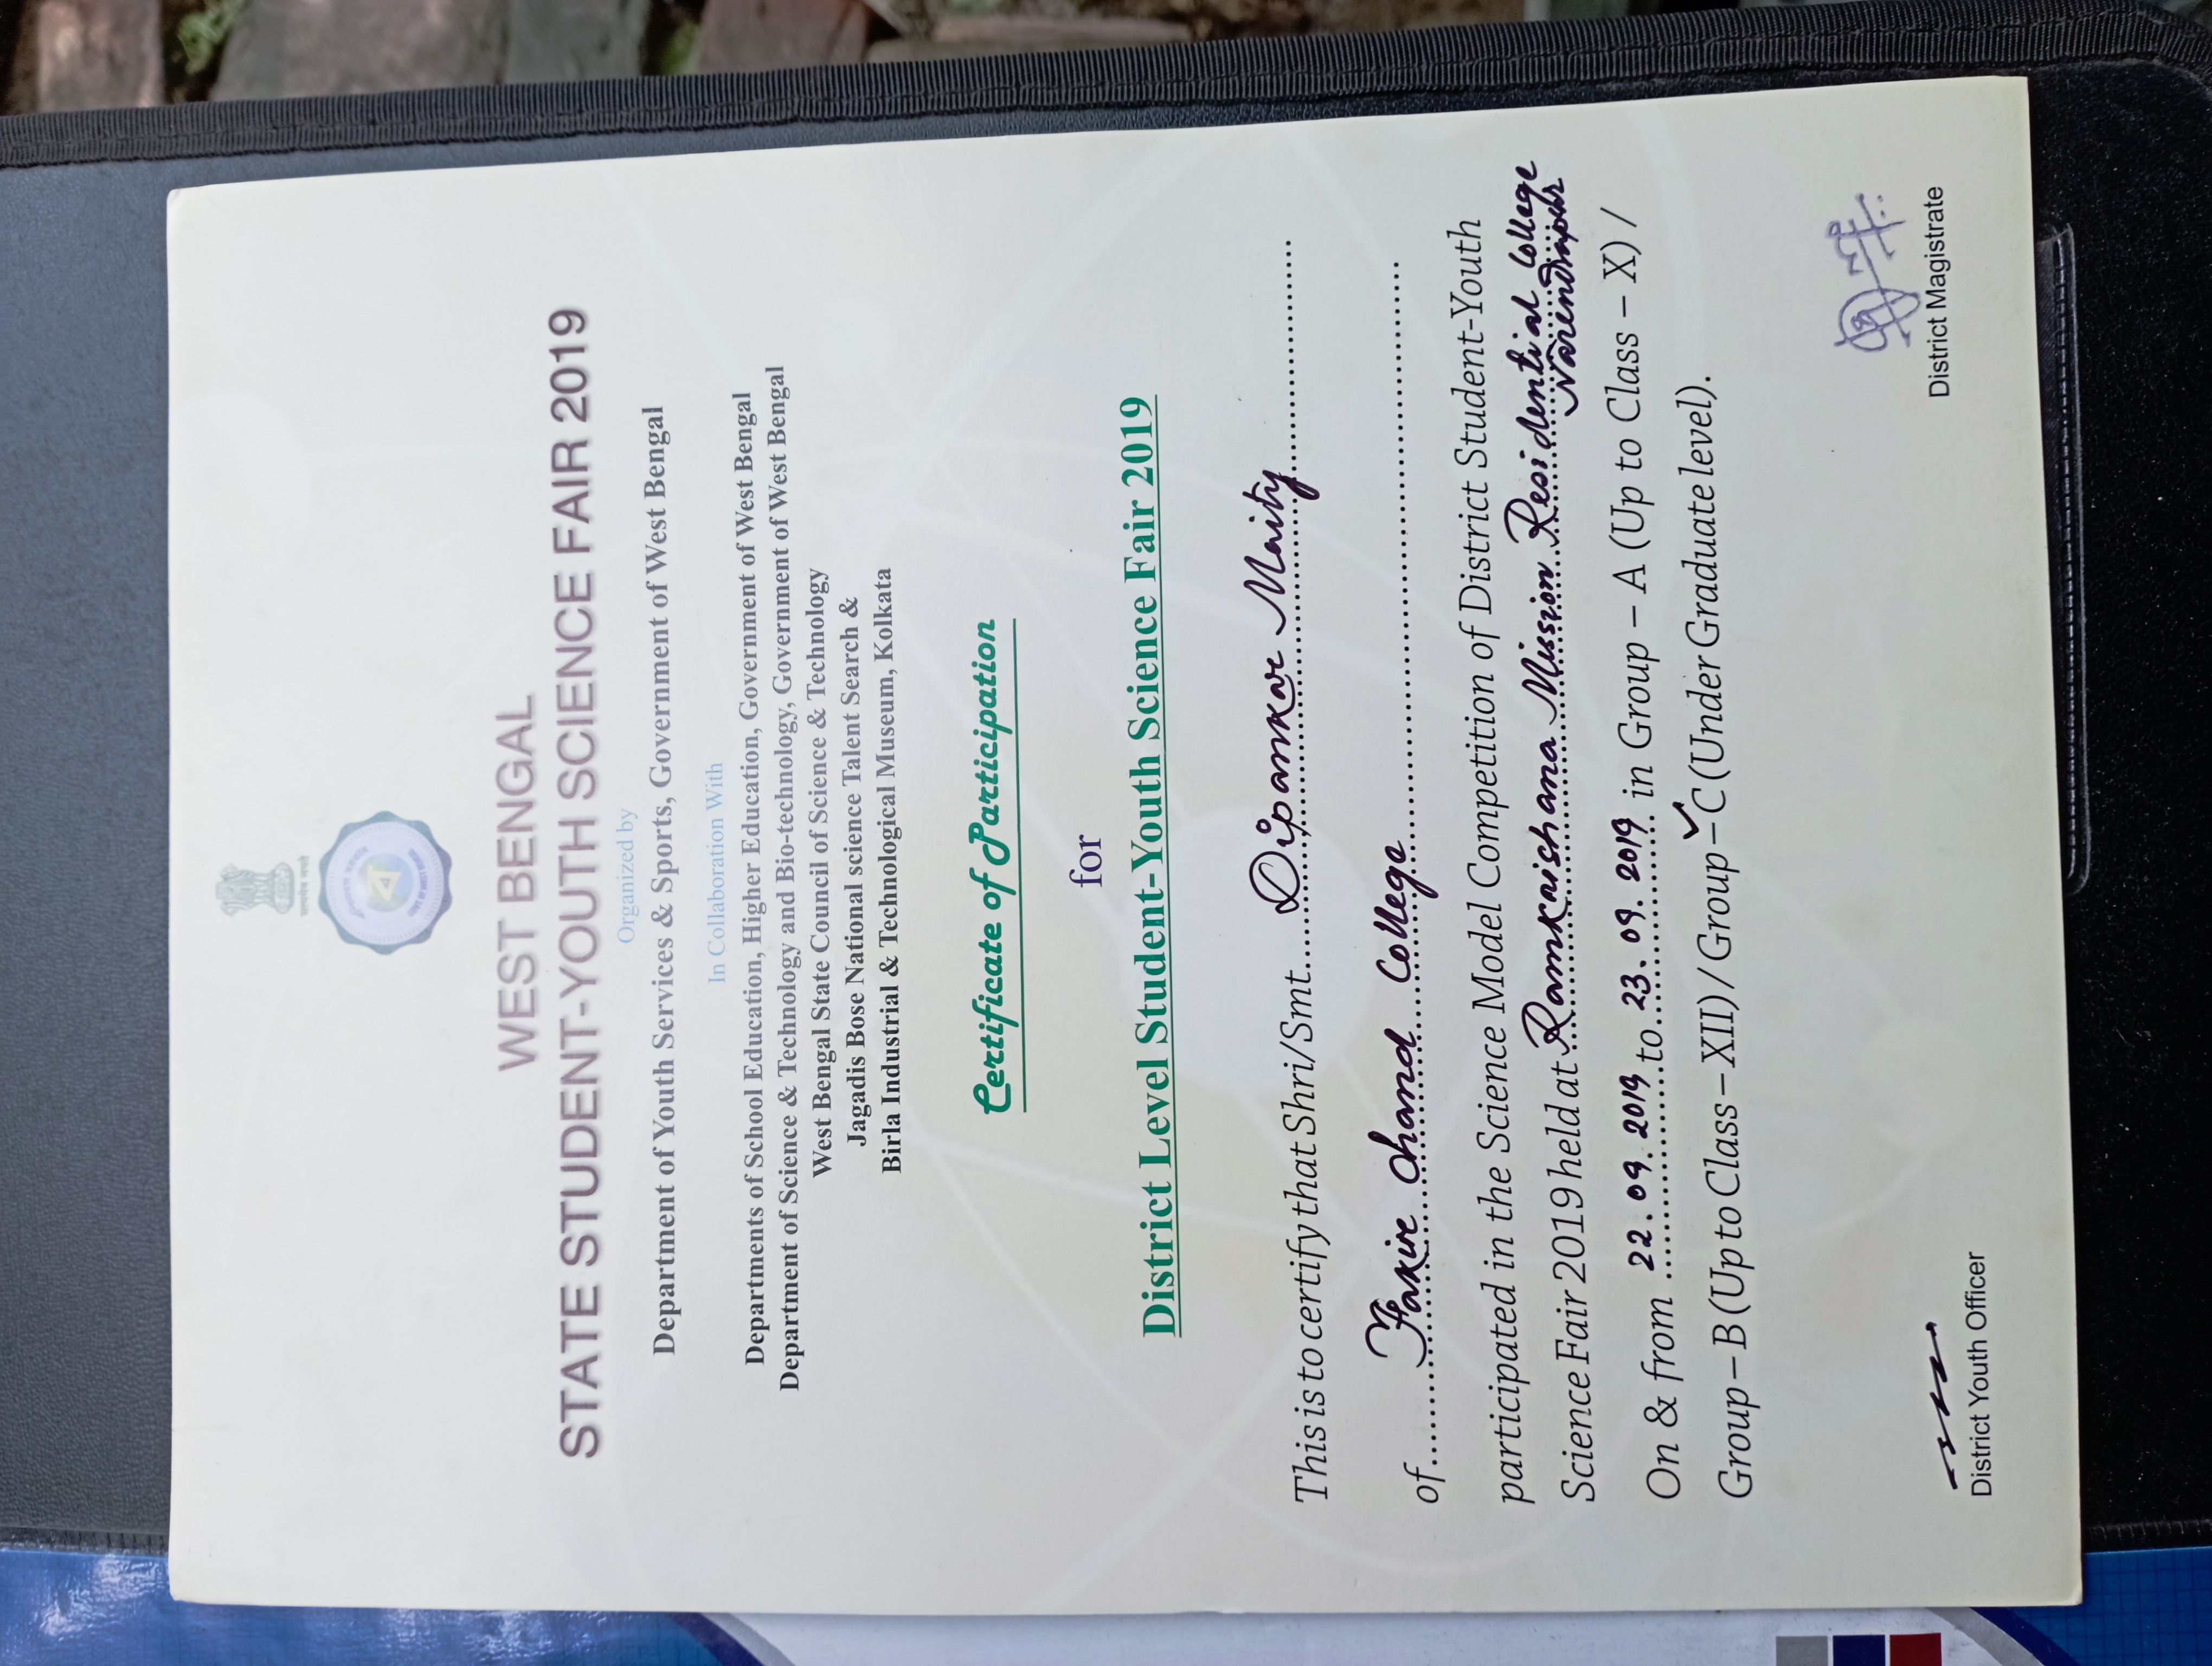 सत्यमेव जयते
ব
GOVT. OF WEST BENGAL
WEST BENGAL
STATE STUDENT-YOUTH SCIENCE FAIR 2019
Organized by
Department of Youth Services & Sports, Government of West Bengal
In Collaboration With
Departments of School Education, Higher Education, Government of West Bengal
Department of Science & Technology and Bio-technology, Government of West Bengal
West Bengal State Council of Science & Technology
Jagadis Bose National science Talent Search &
Birla Industrial & Technological Museum, Kolkata
Certificate of Participation
for
District Level Student-Youth Science Fair 2019
This is to certify that Shri/Smt. Dipankar Maity
of Fakir Chand College
participated in the Science Model Competition of District Student-Youth
Science Fair 2019 held at Ramkrishana Mission Residential College
Narendrapur
On & from 22.09.2019 to 23.09.2019 in Group – A (Up to Class – X) /
Group – B (Up to Class – XII) / Group – C (Under Graduate level).
District Youth Officer
District Magistrate